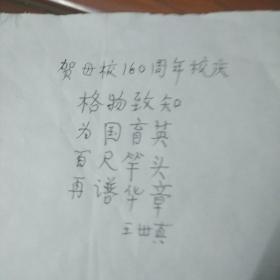 贺母校160周年校庆
格物致知
为国育英
百尺竿头
再谱华章
王世真